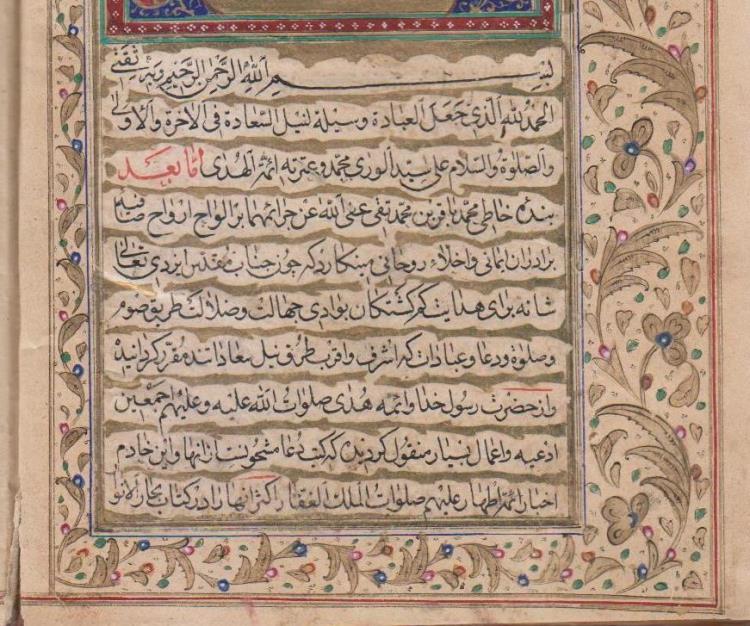 بسم الله الرحمن الرحیم وبه ثقتی
الحمد لله الذی جعل العبادة وسیلة لنیل السعادة فی الآخرة والاولی
والصلوة والسلام علی سید الوری محمد وعترته ائمة الهدی اما بعد
بنده خاطی محمد باقر بن محمد تقی عفی الله عن جرائمهما بر الواح ارواح صافیه
برادران ایمانی واخلاء روحانی مینکارد که چون جناب مقدس ایزدی تعالی
شانه برای هدایت کم کشتکان بوادی جهالت وضلالت طریق صوم
وصلوة ودعا وعبادات که اشرف واقرب طرق نیل سعاداتند مقرر کردانیده
واز حضرت رسول خدا وائمه هدی صلوات الله علیه وعلیهم اجمعین
ادعیه واعمال بسیار منقول کردیده که کتب دعا مشحونست از انها واین خادم
اخبار ائمه اطهار علیهم صلوات الملك الغفار اکثر انها را در کتاب بحار الانوار